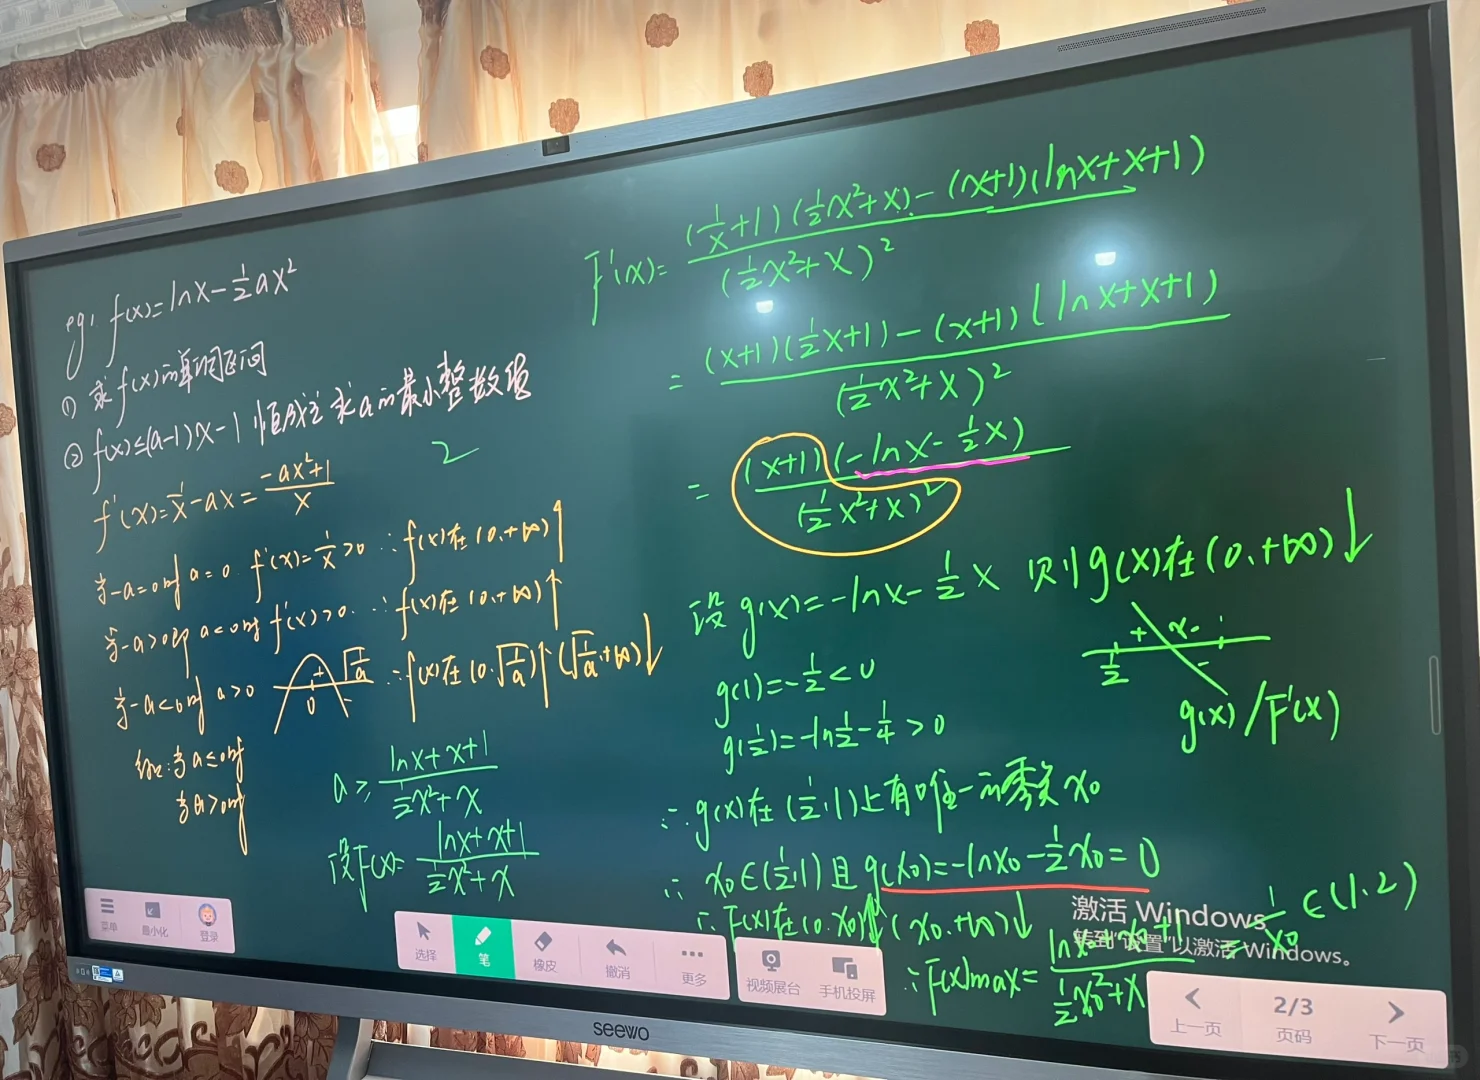 eg1 f(x)=lnx-½ax²
① 求f(x)的单调区间
② f(x)≤(a-1)x-1 恒成立 求a的最小整数值
2
f'(x)=1/x-ax=(-ax²+1)/x
当-a=0时 a=0 f'(x)=1/x>0 ∴f(x)在(0,+∞)↑
当-a>0即a<0时 f'(x)>0 ∴f(x)在(0,+∞)↑
当-a<0时 a>0 ∴f(x)在(0,√(1/a))↑(√(1/a),+∞)↓
+ √(1/a)
0 -
综上:当a≤0时
当a>0时
a≥(lnx+x+1)/(½x²+x)
设F(x)=(lnx+x+1)/(½x²+x)
F'(x)=((1/x+1)(½x²+x)-(x+1)(lnx+x+1))/(½x²+x)²
=((x+1)(½x+1)-(x+1)(lnx+x+1))/(½x²+x)²
=((x+1)(-lnx-½x))/(½x²+x)²
设g(x)=-lnx-½x 则g(x)在(0,+∞)↓
g(1)=-½<0
g(½)=-ln½-¼>0
+ x₀ 1
½ -
g(x)/F'(x)
∴g(x)在(½,1)上有唯一的零点x₀
∴x₀∈(½,1)且g(x₀)=-lnx₀-½x₀=0
∴F(x)在(0,x₀)↑(x₀,+∞)↓
∴F(x)max=(lnx₀+x₀+1)/(½x₀²+x =1/x₀∈(1,2)
激活 Windows
转到"设置"以激活 Windows。
菜单
最小化
登录
选择
笔
橡皮
撤消
更多
视频展台
手机投屏
上一页
2/3
页码
下一页
seewo